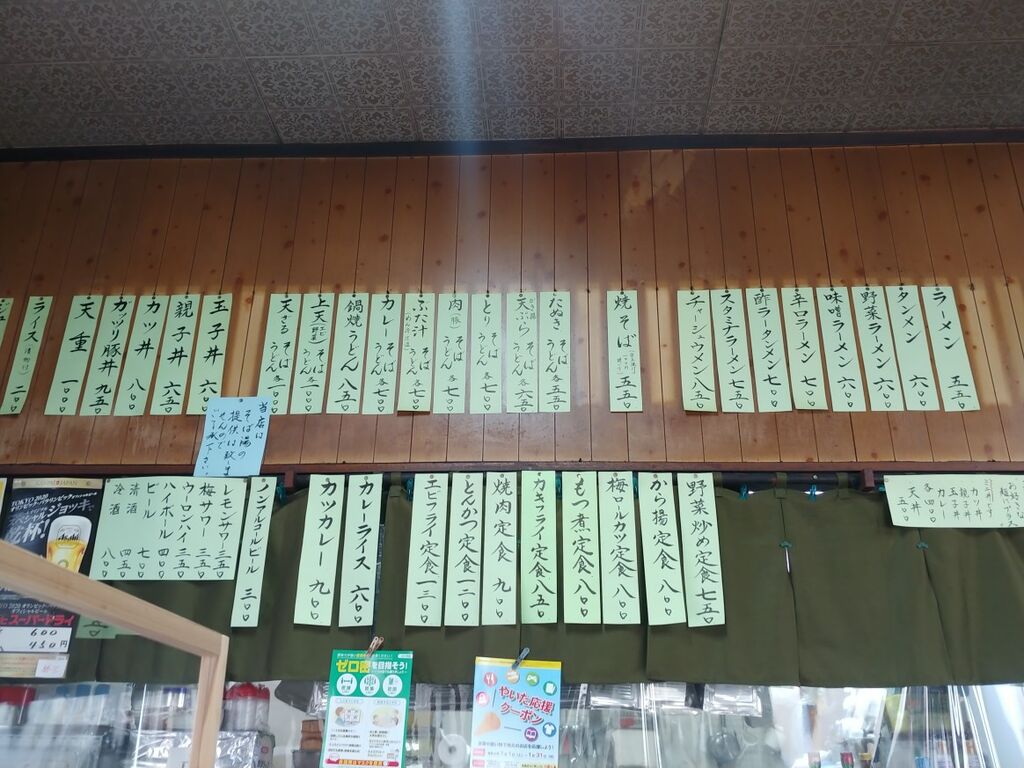 ラーメン 五五〇
タンメン 六〇〇
野菜ラーメン 六〇〇
味噌ラーメン 六〇〇
辛ロラーメン 七〇〇
酢ラータンメン 七〇〇
スタミナラーメン 七五〇
チャーシュウメン 八五〇
焼そば 五五〇
たぬき そば うどん 各五五〇
天ぷら そば うどん 各六五〇
とり そば うどん 各七〇〇
肉(豚) そば うどん 各七〇〇
ぶた汁 そば うどん 各七〇〇
カレー そば うどん 各七〇〇
鍋焼うどん 八五〇
上天 そば うどん
天ざる そば うどん
玉子丼 六〇〇
親子丼 六五〇
カツ丼 八〇〇
ガッツリ豚丼 九五〇
天重 一〇〇〇
ライス 二〇〇
当店は
そば湯の
提供は致しま
せんので
ご了承下さい。
野菜炒め定食 七五〇
から揚定食 八〇〇
梅ロールカツ定食 八〇〇
もつ煮定食 八〇〇
カキフライ定食 八五〇
焼肉定食 九〇〇
とんかつ定食 一二〇〇
エビフライ定食 一三〇〇
カレーライス 六五〇
カツカレー 九〇〇
ノンアルコールビール 三〇〇
レモンサワー 三五〇
梅サワー 三五〇
ウーロンハイ 三五〇
ハイボール 四〇〇
ビール 七〇〇
清酒 四五〇
冷酒 八〇〇
カツ丼
親子丼
玉子丼
カレー
各四〇〇
天丼
五〇〇
TOKYO 2020
ジョッキで
乾杯!
スーパードライ
600
450円
ゼロ密を目指そう!
やいた応援
クーポン